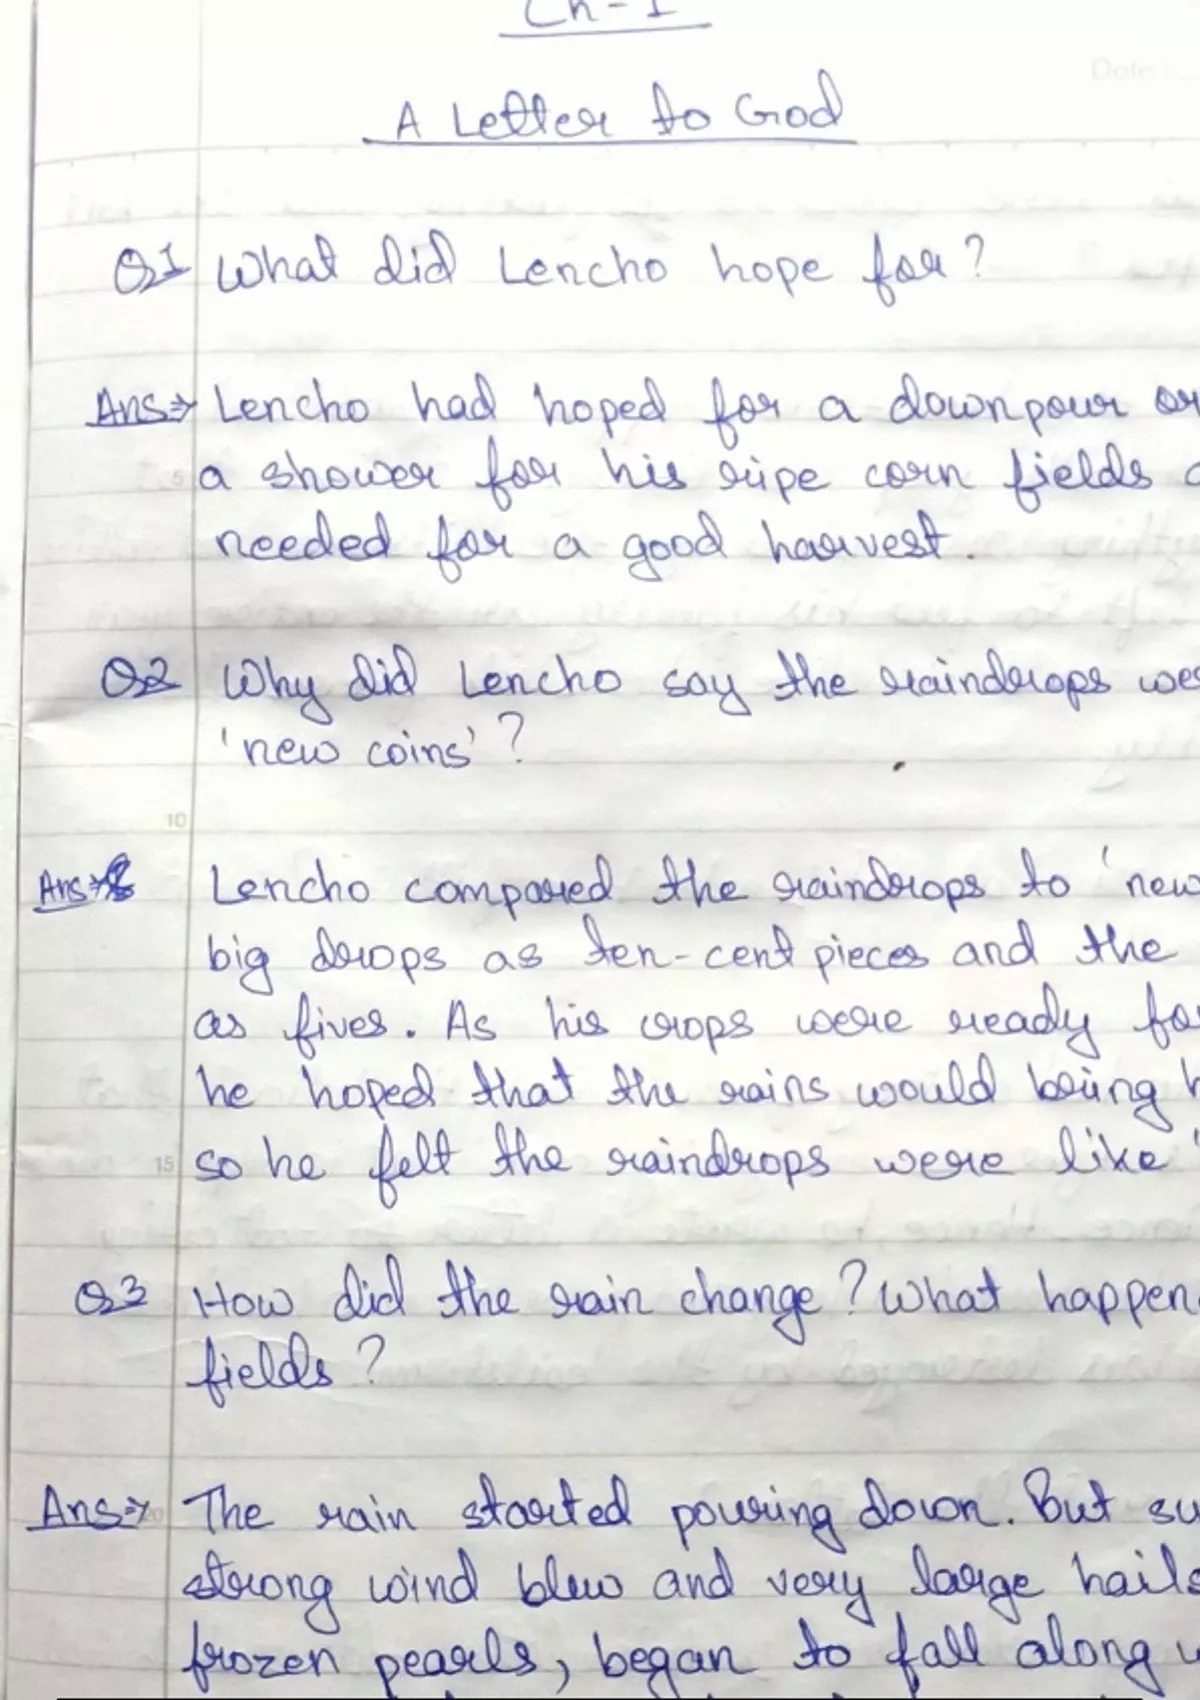 Ch - 1
Date:
A Letter to God
Q1 What did Lencho hope for?
Ans→ Lencho had hoped for a downpour or
5 a shower for his ripe corn fields
needed for a good harvest.
Q2 Why did Lencho say the raindrops
'new coins'?
10
Ans→ Lencho compared the raindrops to 'new
big drops as ten-cent pieces and the
as fives. As his crops were ready
he hoped that the rains would bring
15 so he felt the raindrops were like
Q3 How did the rain change? What happen
fields?
Ans→ The rain started pouring down. But su
strong wind blew and very large hails
frozen pearls, began to fall along